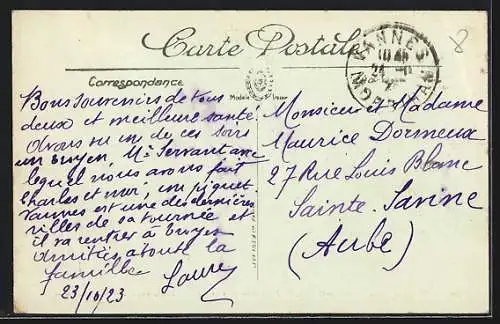 Carte Postale
Correspondance
Modèle
VANNES
MORBIHAN
8
Bons souvenirs de tous
deux et meilleure santé.
Avons vu un de ces soirs
un Troyen, Mr Servant avec
lequel nous avons fait
Charles et moi, un piquet.
Vannes est une des dernières
villes de sa tournée et
il va rentrer à Troyes
Amitiés à toute la
famille
Laure
23/10/23
Monsieur et Madame
Maurice Dormeux
27 Rue Louis Blanc
Sainte-Savine
(Aube)